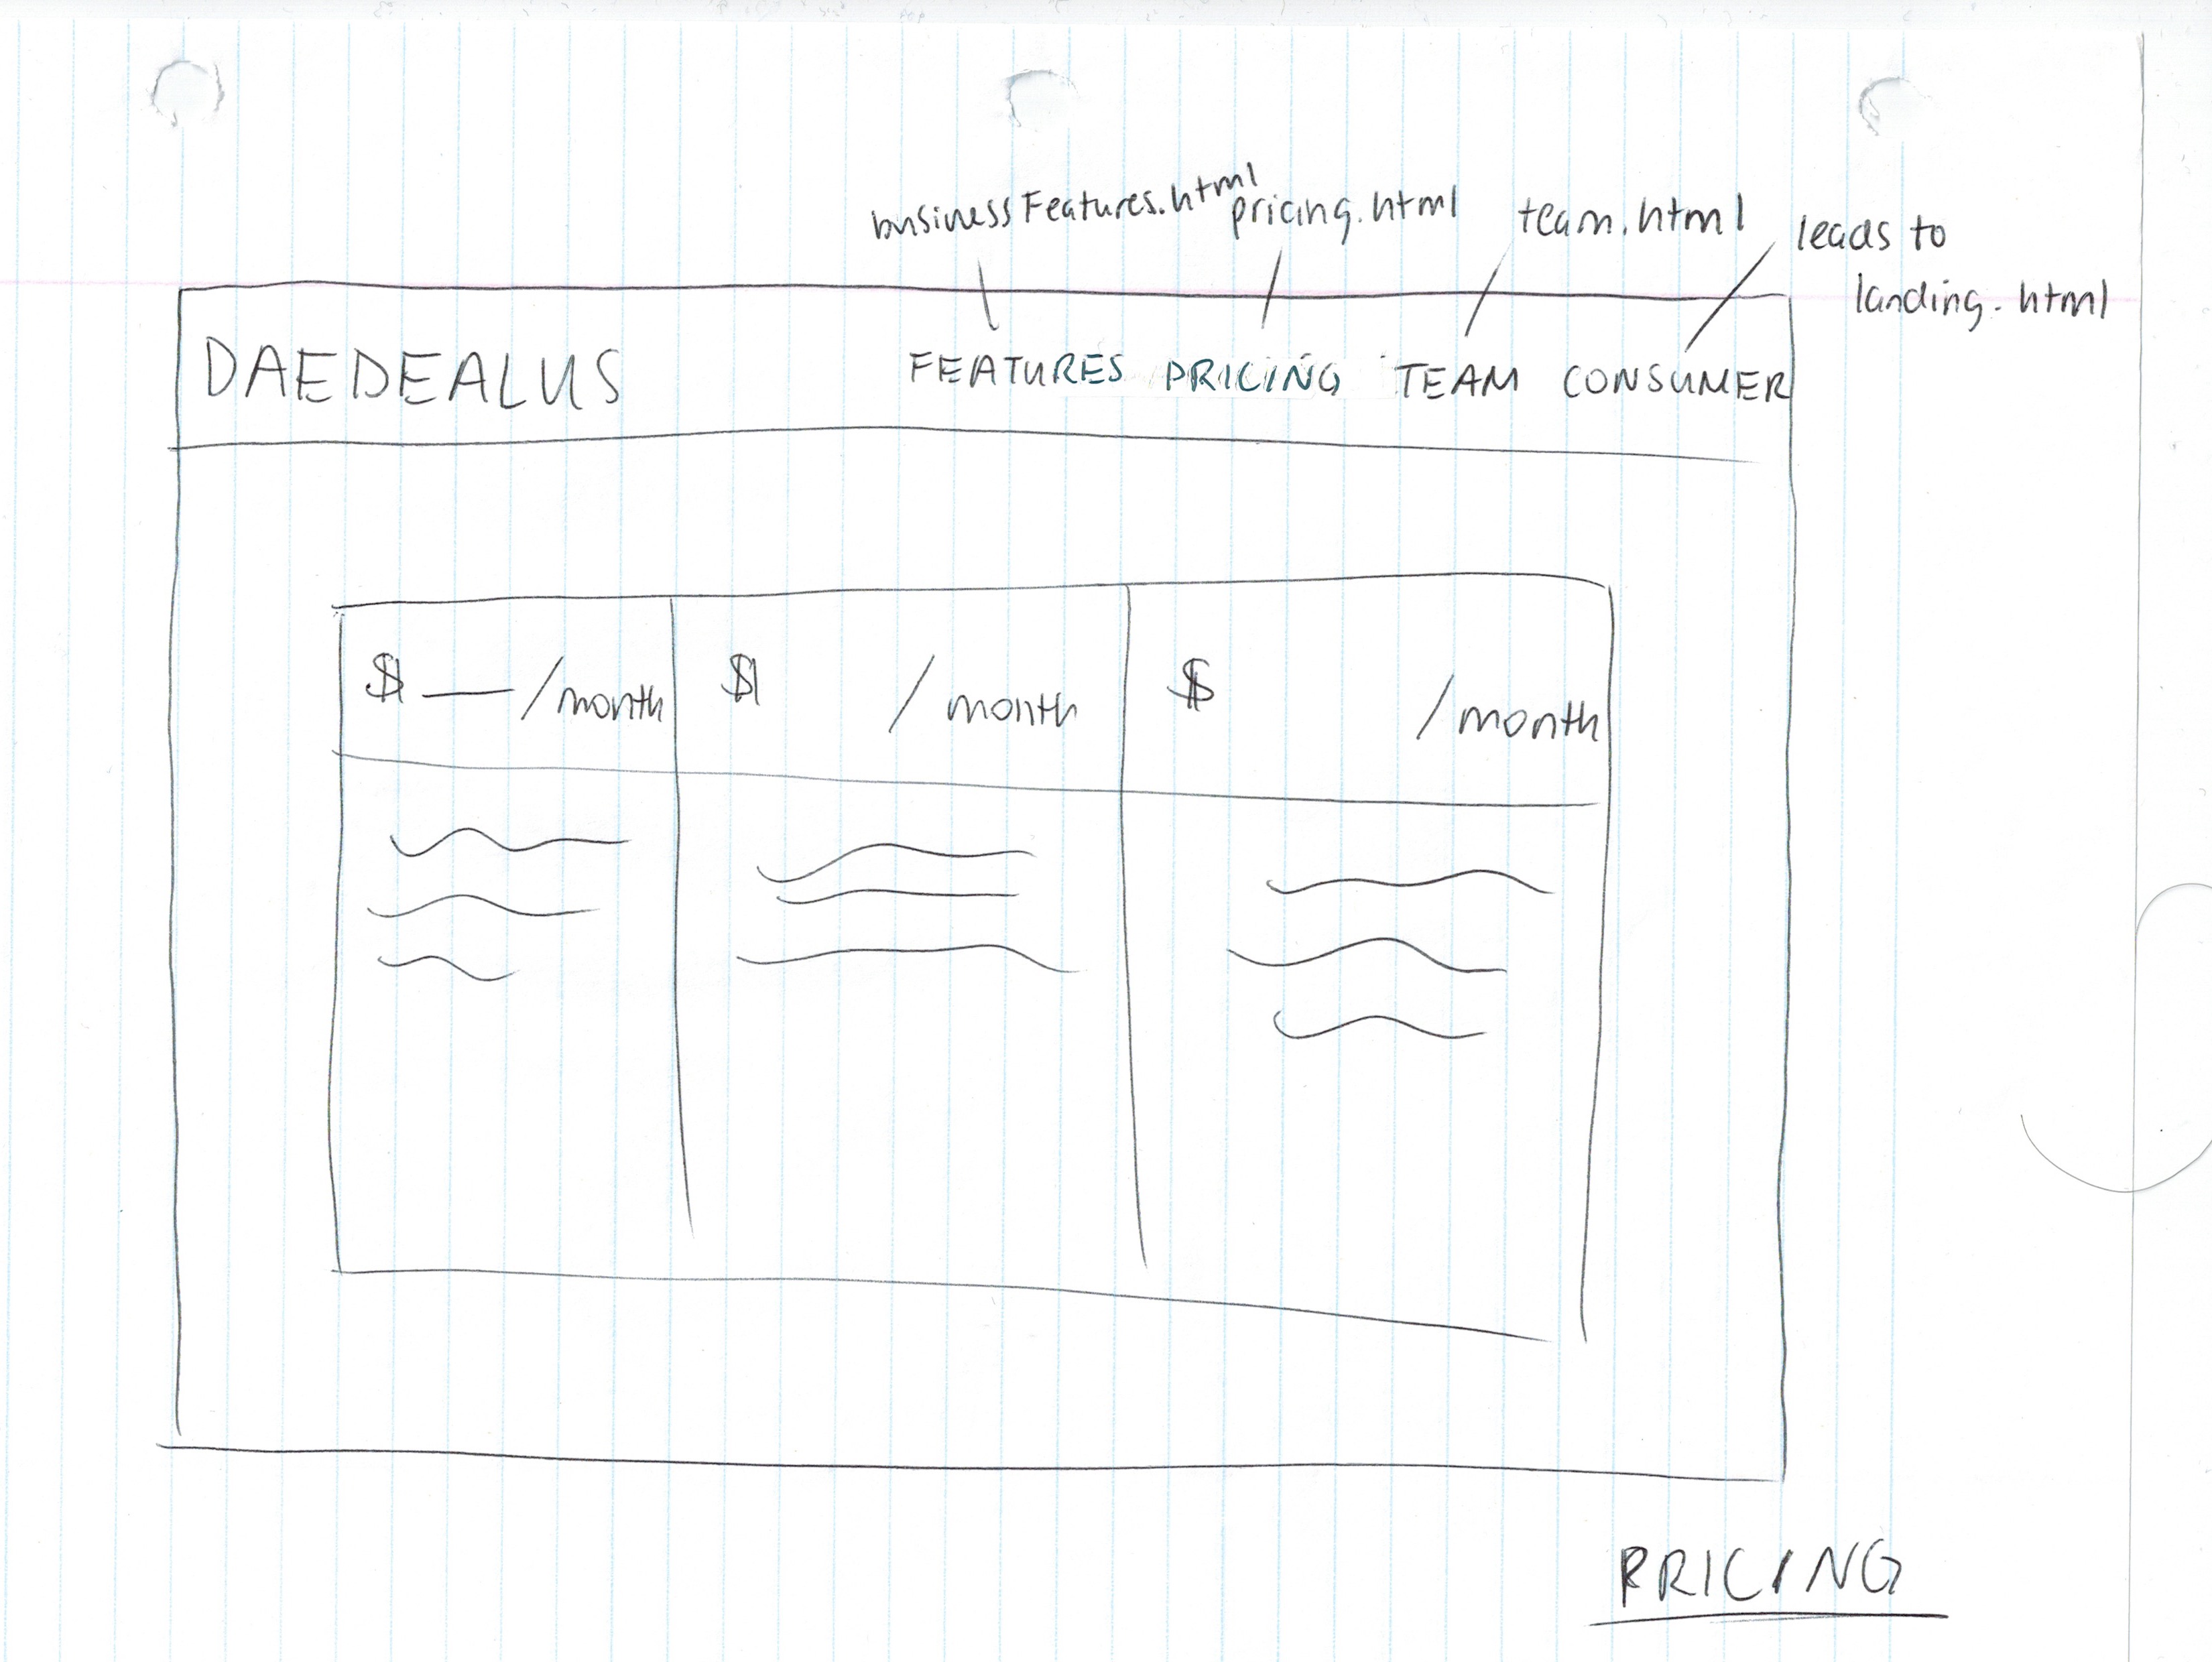 businessFeatures.html pricing.html team.html leads to
landing.html
DAEDEALUS FEATURES PRICING TEAM CONSUMER
$ /month $ / month $ /month
PRICING